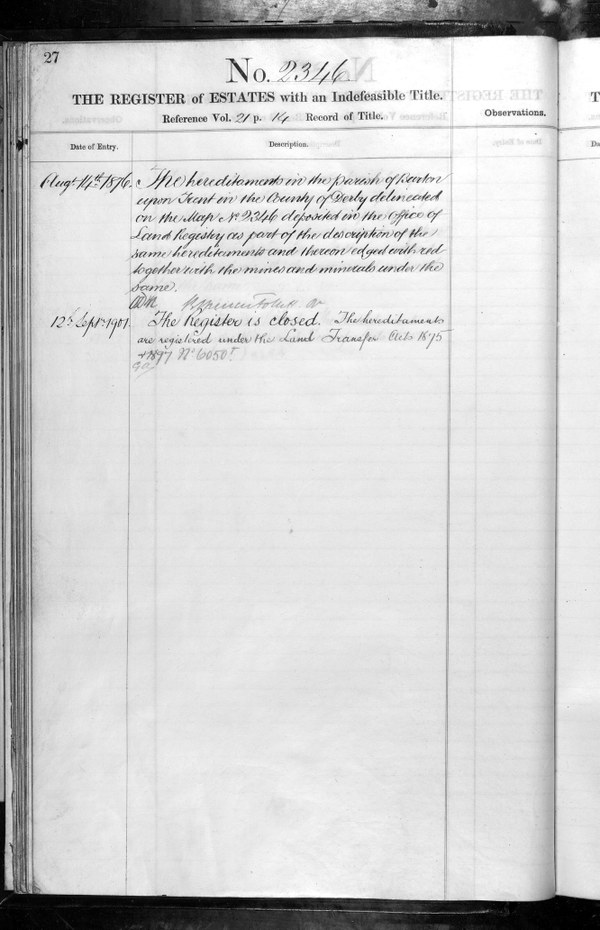 27
No. 2346
THE REGISTER of ESTATES with an Indefeasible Title.
Reference Vol. 21 p. 14 Record of Title.
Observations.
Date of Entry.
Description.
Augt. 14th 1876.
The hereditaments in the parish of Burton
upon Trent in the County of Derby delineated
on the Map No 2346 deposited in the Office of
Land Registry as part of the description of the
same hereditaments and thereon edged with red
together with the mines and minerals under the
same.
12th Septr. 1901.
The Register is closed. The hereditaments
are registered under the Land Transfer Acts 1875
& 1897 No 6050